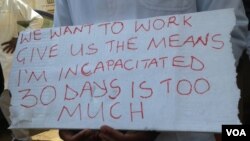 WE WANT TO WORK
GIVE US THE MEANS
I'M INCAPACITATED
30 DAYS IS TOO
MUCH
VOA